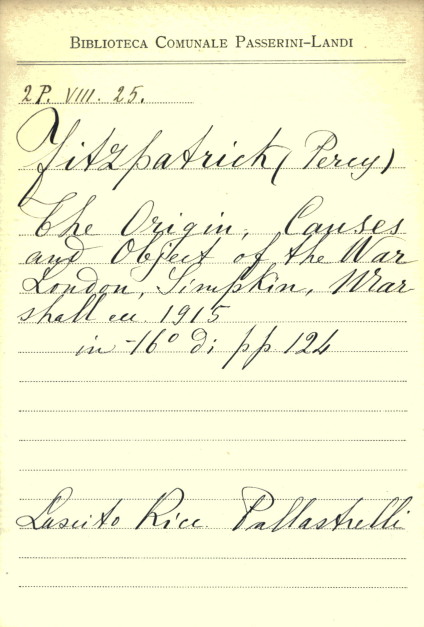 BIBLIOTECA COMUNALE PASSERINI-LANDI
2P. VIII. 25.
Fitzpatrick (Percy)
The Origin, Causes
and Object of the War
London, Simpkin, Mar
shall 1915
in-16° di pp 124
Lascito Ricc. Pallastrelli